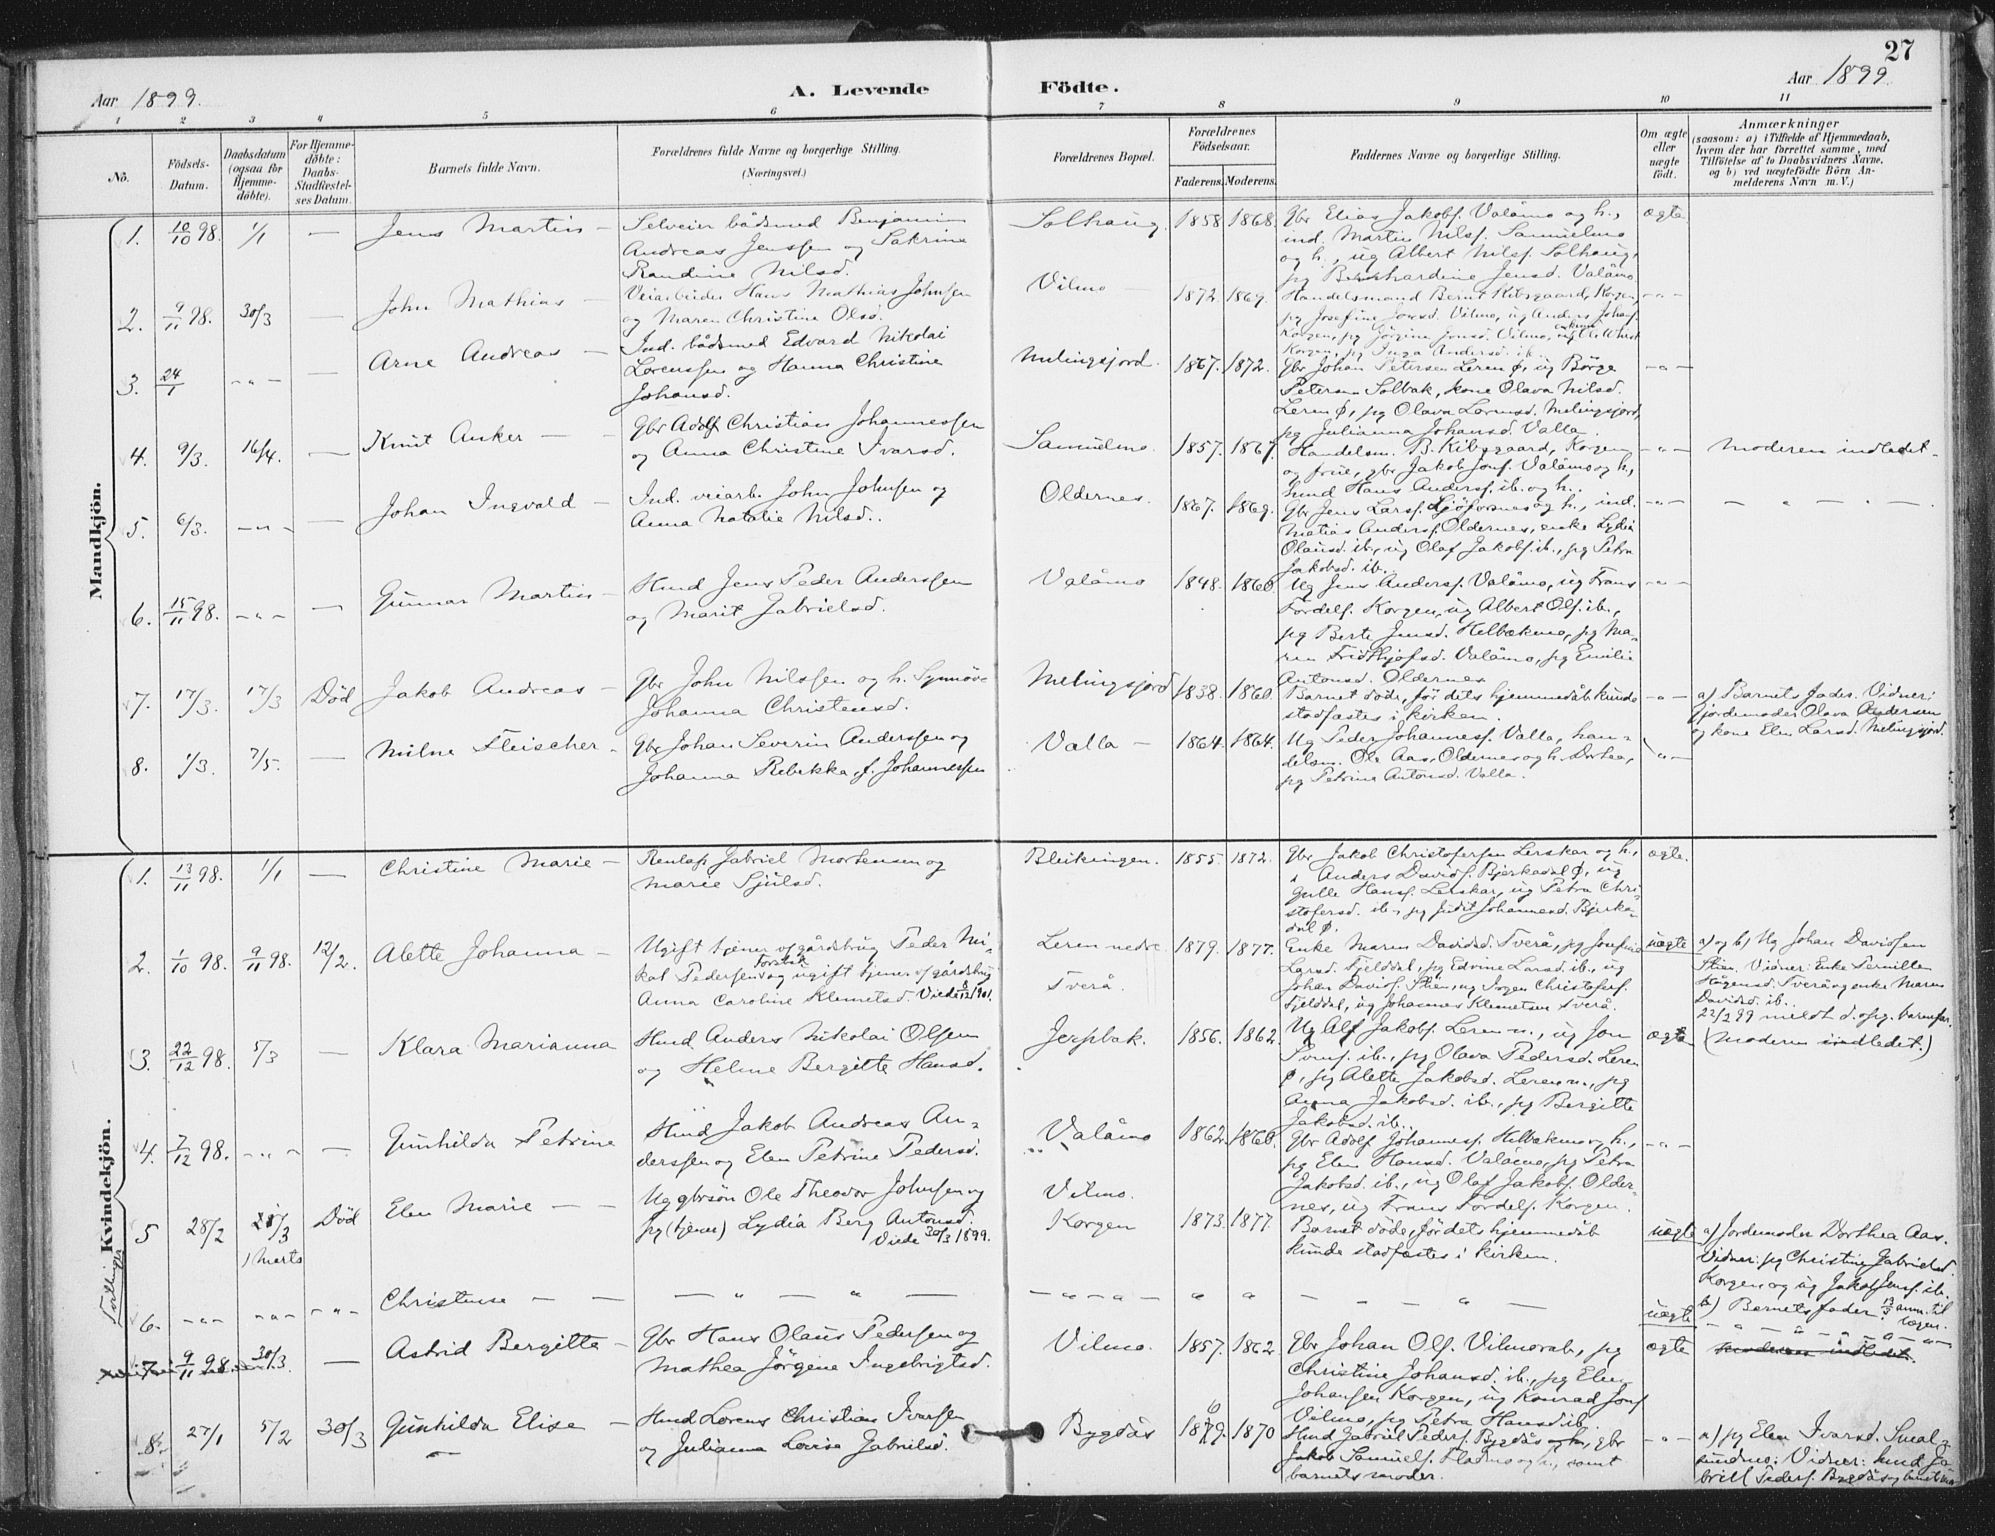 27
Aar 1899.
A. Levende
Födte.
Aar 1899
1 2 3 4 5 6 7 8 9 10 11
No.
Födsels-Datum.
Daabsdatum (ogsaa for Hjemmedøbte).
For Hjemmedøbte: Daabs-Stadfæstelses Datum.
Barnets fulde Navn.
Forældrenes fulde Navne og borgerlige Stilling.
(Næringsvei.)
Forældrenes Bopæl.
Forældrenes Fødselsaar.
Faderens. Moderens.
Faddernes Navne og borgerlige Stilling.
Om ægte eller uægte født.
Anmærkninger
(saasom: a) i Tilfælde af Hjemmedaab, hvem der har forrettet samme, med Tilføielse af to Daabsvidners Navne, og b) ved uægtefødte Børn Anmelderens Navn m. V.)
Mandkjön.
1. 10/10 98. 1/1 — Jens Martin —
Selveier bådsmed Benjamin
Andreas Jenssen og Sakrine
Randine Nilsd.
Solhaug. 1858 1868.
Gbr Elias Jakobs. Valåmo og h.,
ind. Martin Nilsf. Samuelmo
og h., ug Albert Nilsf. Solhaug,
pg Bernhardine Jensd. Valåmo
ægte
2. 9/11 98. 30/3 — John Mathias —
Veiarbeider Hans Mathias Johnsen
og Maren Christine Olsd.
Vilmo — 1872. 1869.
Handelsmand Bernt Kibsgaard, Korgen,
pg Josefine Jonsd. Vilmo, ug Anders Johans.
Korgen, pg Jörgine Jonsd. Vilmo,
Korgen, pg Inga Andersd. ib.
— " —
3. 24/1 — " — — Arne Andreas —
Ind. bådsmed Edvard Nikolai
Lorenssen og Hanna Christine
Johansd.
Melingsjord. 1867. 1872.
Gbr Johan Petersen Leren Ø, ug Börge
Petersen Solbak, kone Olava Nilsd.
Leren Ø, pg Olava Lorensd. Melingsjord,
pg Julianna Johansd. Valla.
— " —
4. 9/3. 16/4. — Knut Anker — —
Gbr Adolf Christian Johannessen
og Anna Christine Ivarsd.
Samuelmo. 1857. 1867.
Handelsm. B. Kibsgaard, Korgen
og frue, gbr Jakob Jonsf. Valåmo og h.,
husmd Hans Andersf. ib. og h.
— " — Moderen indledet.
5. 6/3. — " — — Johan Ingvald —
Ind. veiarb. John Johnsen og
Anna Natalie Nilsd.
Oldernes. 1867. 1869.
Gbr Jens Larsf. Ljöforsnes og h., ind.
Matias Andersf. Oldernes, enke Lydia
Olausd. ib., ug Olaf Jakobsf. ib., pg Petra
Jakobsd. ib.
— " — — " — " —
6. 15/11 98. — " — — Gunnar Martin —
Husmd Jens Peder Anderssen
og Marit Gabrielsd.
Valåmo 1848. 1860.
Ug Jens Andersf. Valåmo, ug Frans
Fordelf. Korgen, ug Albert Olsf. ib.,
pg Berte Jensd. Helbækmo, pg Maren
Fridthjofsd. Valåmo, pg Emilie
Antonsd. Oldernes
— " —
7. 17/3. 17/3 Död Jakob Andreas —
Gbr John Nilssen og h. Synnöve
Johanna Christensd.
Melingsjord 1838. 1860.
Barnet döde, för dets hjemmedåb kunde
stadfæstes i kirken.
— " —
a) Barnets fader. Vidner:
Gjordemoder Olava Andersen
og kone Elen Larsd. Melingsjord.
8. 1/3. 7/5. — Milne Fleischer —
Gbr Johan Severin Anderssen og
Johanna Rebekka f. Johannessen
Valla — 1864. 1864.
Ug Peder Johannesf. Valla, handelsm.
Ole Aas, Oldernes og h. Dorthea,
pg Petrine Antonsd. Valla.
— " —
Kvindekjön.
1. 13/11 98. 1/1 — Christine Marie —
Renlap Gabriel Mortensen og
Marie Sjulsd.
Bleikingen. 1855. 1872.
Gbr Jakob Christofersen Lerskar og h.,
i Anders Davids. Bjerkadal Ø, ug
Gulle Hansf. Lerskar, ug Petra Christofersd.
ib., pg Judit Johannesd. Bjerkadal Ø.
ægte.
2. 1/10 98. 9/11 98. 12/2. Alette Johanna —
Ugift tjener v/gårdsbrug Peder Mikal
Pedersen og ugift tjener v/gårdsbrug
Anna Caroline Klemetsd. Viede 8/12 1901.
Leren nedre
Tverå. 1879. 1877.
Enke Maren Davidsd. Tverå, pg Josefine
Larsd. Fjelddal, pg Edvine Larsd. ib., ug
Johan Davids. Stien, ug Jorgen Christofersf.
Fjelddal, ug Johannes Klemetsen Tverå
uægte
a) og b) Ug Johan Davidsen
Stien. Vidner: Enke Pernille
Hågensd. Tverå og enke Maren
Davidsd. ib.
22/2 99 meldt d. opg. barnefar.
3. 22/12 98. 5/3 — Klara Marianna
Husmd Anders Nikolai Olsen
og Helene Bergitte Hansd.
Jerpbak. 1856. 1862
Ug Alf Jakobsf. Leren n., ug Jon
ib., pg Olava Pedersd. Leren
Ø, pg Alette Jakobsd. Leren n., pg
Anna Jakobsd. ib., pg Bergitte
Jakobsd. ib.
ægte (Moderen indledet.)
4. 7/12 98. — " — — Gunhilda Petrine
Husmd Jakob Andreas Anderssen
og Elen Petrine Pedersd.
Valåmo 1862. 1860.
Gbr Adolf Johannesf. Helbækmo og h.,
pg Elen Hansd. Valåmo, pg Petra
Jakobsd. ib., ug Olaf Jakobsf. Oldernes,
ug Frans Fordelf. Korgen.
— " —
Tvillinger
5 28/2 28/3 1 Marts Död Elen Marie — —
Ug gbrsön Ole Theodor Johnsen og
pg (tjener) Lydia Berg Antonsd.
Viede 30/3 1899.
Vilmo.
Korgen 1873. 1877.
Barnet döde, för dets hjemmedåb
kunde stadfæstes i kirken.
uægte
a) Jordemoder Dorthea Aas.
Vidner: pg Christine Gabrielsd.
Korgen og ug Jakob Jensf. ib.
b) Barnets fader. 13/3 anm. til
6. — " — — " — — " — Christense — —
— " — " — — " — " — " " — — " —
uægte — " — " — " — " —
7. 9/11 98. 30/3. — Astrid Bergitte —
Gbr Hans Olaus Pedersen og
Mathea Jörgine Ingebrigtsd.
Vilmo. 1857. 1862
Gbr Johan Olsf. Vilmorab., pg
Christine Johansd. ib., pg Elen
Johansen Korgen, ug Konrad Jonsf.
Vilmo, pg Petra Hansd. ib.
ægte Moderen indledet.
8. 27/1 5/2 30/3 Gunhilda Elise —
Husmd Lorens Christian Ivarsen
og Julianna Lovise Gabrielsd.
Bygdås 1879. 6 1870
Husmd Gabriel Pedersf. Bygdås og h., gbr
Jakob Samuelf. Fladmo og h., samt
barnets moder.
— " —
a) pg Elen Ivarsd. Smalsundmo.
Vidner: husmd Gabriel
Pedersf. Bygdås og barnets mo